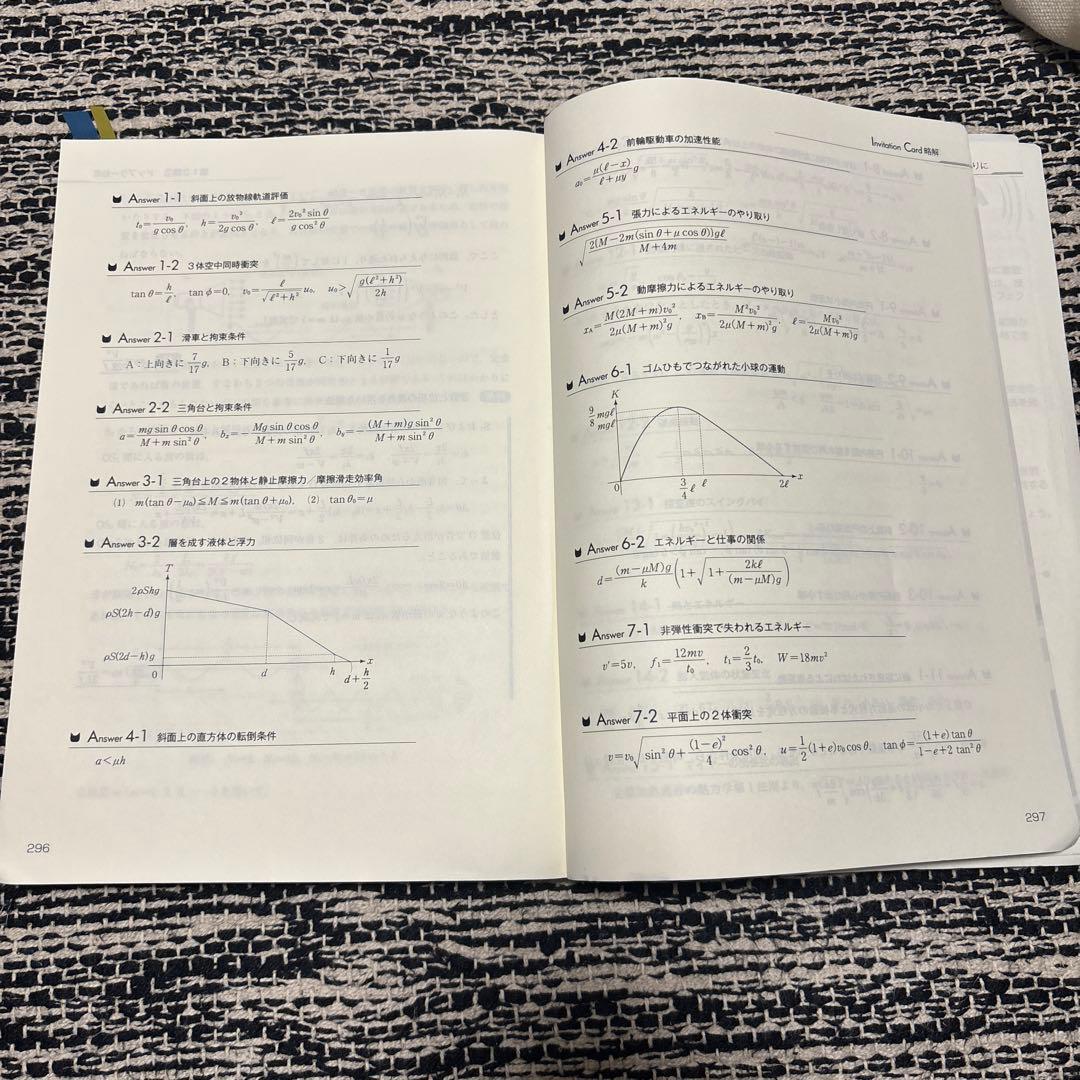 Answer 1-1 斜面上の放物線軌道評価
t₀=v₀/(g cosθ), h=v₀²/(2g cosθ), ℓ=2v₀² sinθ/(g cos²θ)
Answer 1-2 3体空中同時衝突
tanθ=h/ℓ, tanφ=0, v₀=ℓ/√(ℓ²+h²) u₀, u₀>√(g(ℓ²+h²)/2h)
Answer 2-1 滑車と拘束条件
A：上向きに 7/17 g, B：下向きに 5/17 g, C：下向きに 1/17 g
Answer 2-2 三角台と拘束条件
a=mg sinθ cosθ/(M+m sin²θ), bₓ=−Mg sinθ cosθ/(M+m sin²θ), b_y=−(M+m)g sin²θ/(M+m sin²θ)
Answer 3-1 三角台上の2物体と静止摩擦力／摩擦滑走効率角
(1) m(tanθ−μ₀)≦M≦m(tanθ+μ₀), (2) tanθ₀=μ
Answer 3-2 層を成す液体と浮力
T
2ρShg
ρS(2h−d)g
ρS(2d−h)g
0 d h d+h/2 x
Answer 4-1 斜面上の直方体の転倒条件
a<μh
296
Invitation Card 略解
Answer 4-2 前輪駆動車の加速性能
a₀=μ(ℓ−x)/(ℓ+μy) g
Answer 5-1 張力によるエネルギーのやり取り
√(2{M−2m(sinθ+μcosθ)}gℓ/(M+4m))
Answer 5-2 動摩擦力によるエネルギーのやり取り
x_A=M(2M+m)v₀²/(2μ(M+m)²g), x_B=M²v₀²/(2μ(M+m)²g), ℓ=Mv₀²/(2μ(M+m)g)
Answer 6-1 ゴムひもでつながれた小球の運動
K
9/8 mgℓ
mgℓ
0 3/4 ℓ ℓ 2ℓ x
Answer 6-2 エネルギーと仕事の関係
d=(m−μM)g/k (1+√(1+2kℓ/((m−μM)g)))
Answer 7-1 非弾性衝突で失われるエネルギー
v'=5v, f₁=12mv/t₀, t₁=2/3 t₀, W=18mv²
Answer 7-2 平面上の2体衝突
v=v₀√(sin²θ+(1−e)²/4 cos²θ), u=1/2(1+e)v₀cosθ, tanφ=(1+e)tanθ/(1−e+2tan²θ)
297